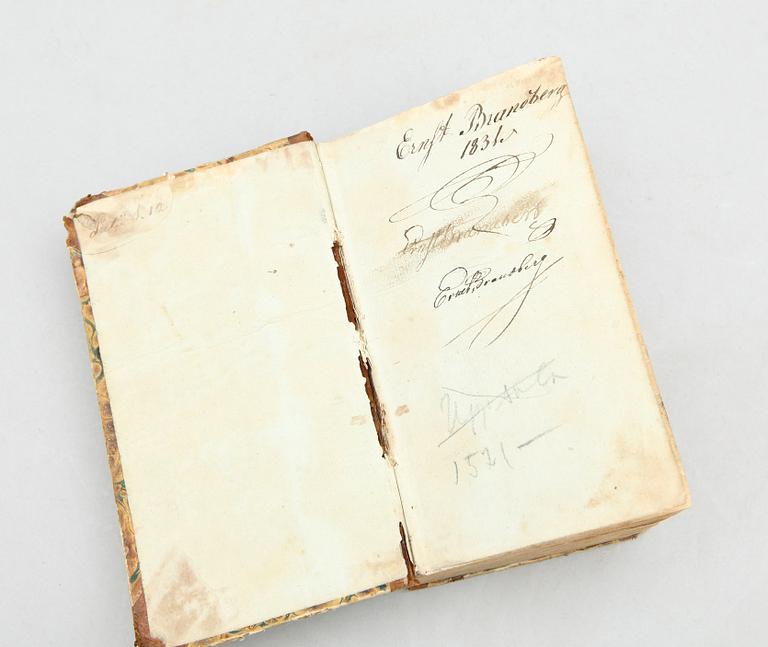 Ernst Brandberg
1831.
Ernst Brandberg
Ernst Brandberg
Uppsala
1521—